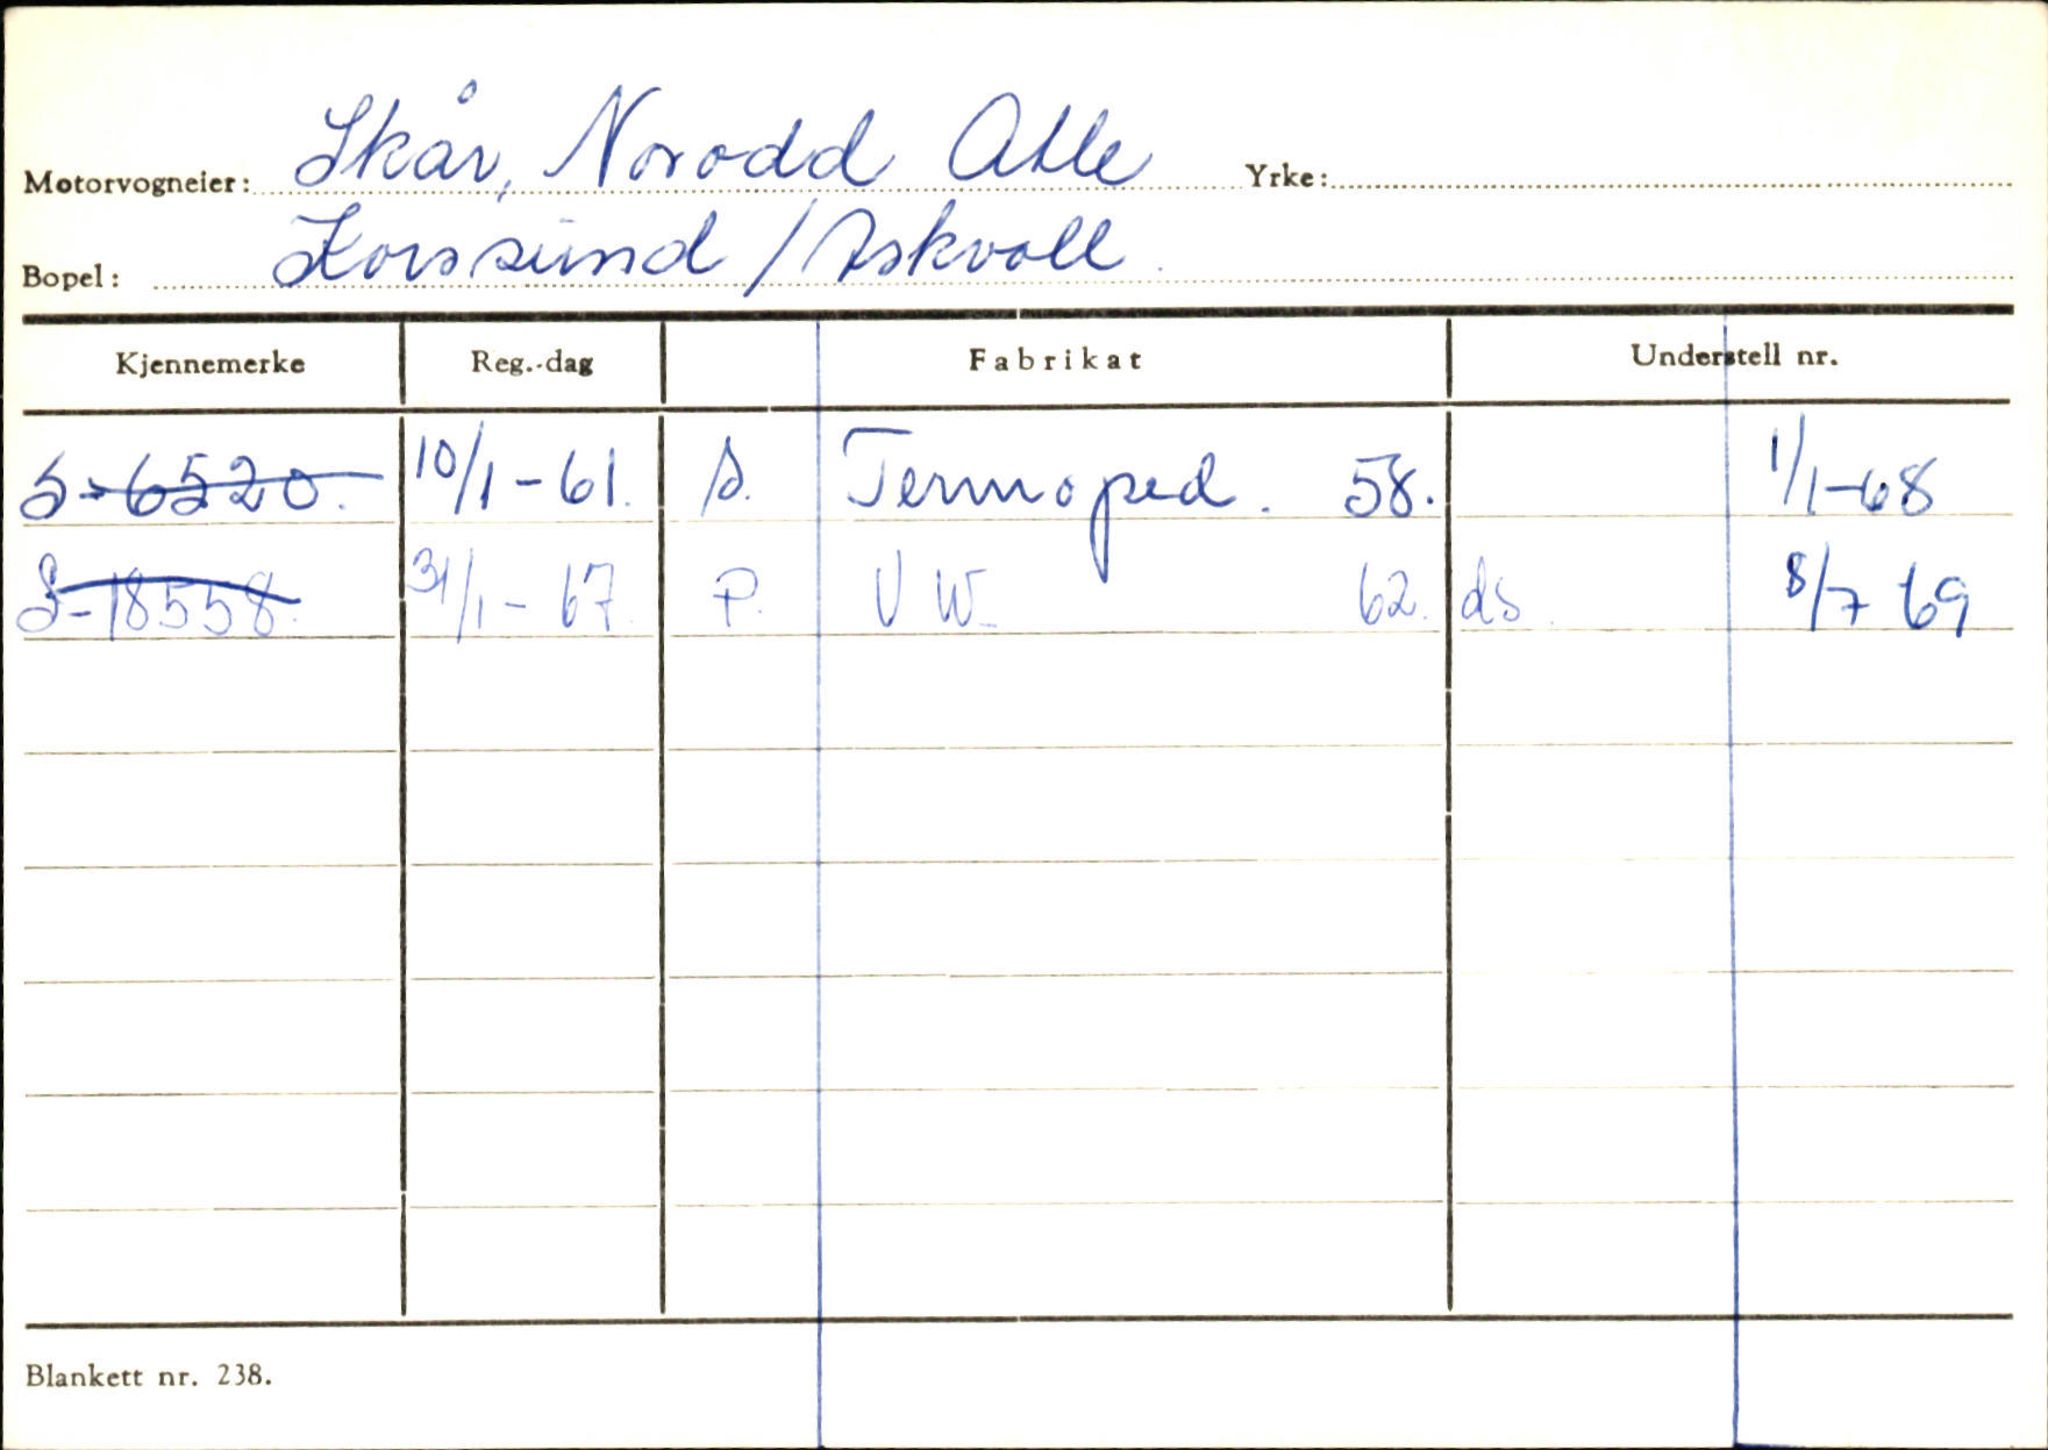 Motorvogneier: Skår, Norodd Atle Yrke:
Bopel: Korssund / Askvoll
Kjennemerke Reg.-dag Fabrikat Understell nr.
S-6520. 10/1-61. S. Termoped. 58. 1/1-68
S-18558. 31/1-67. P. VW 62. ds. 8/7 69
Blankett nr. 238.